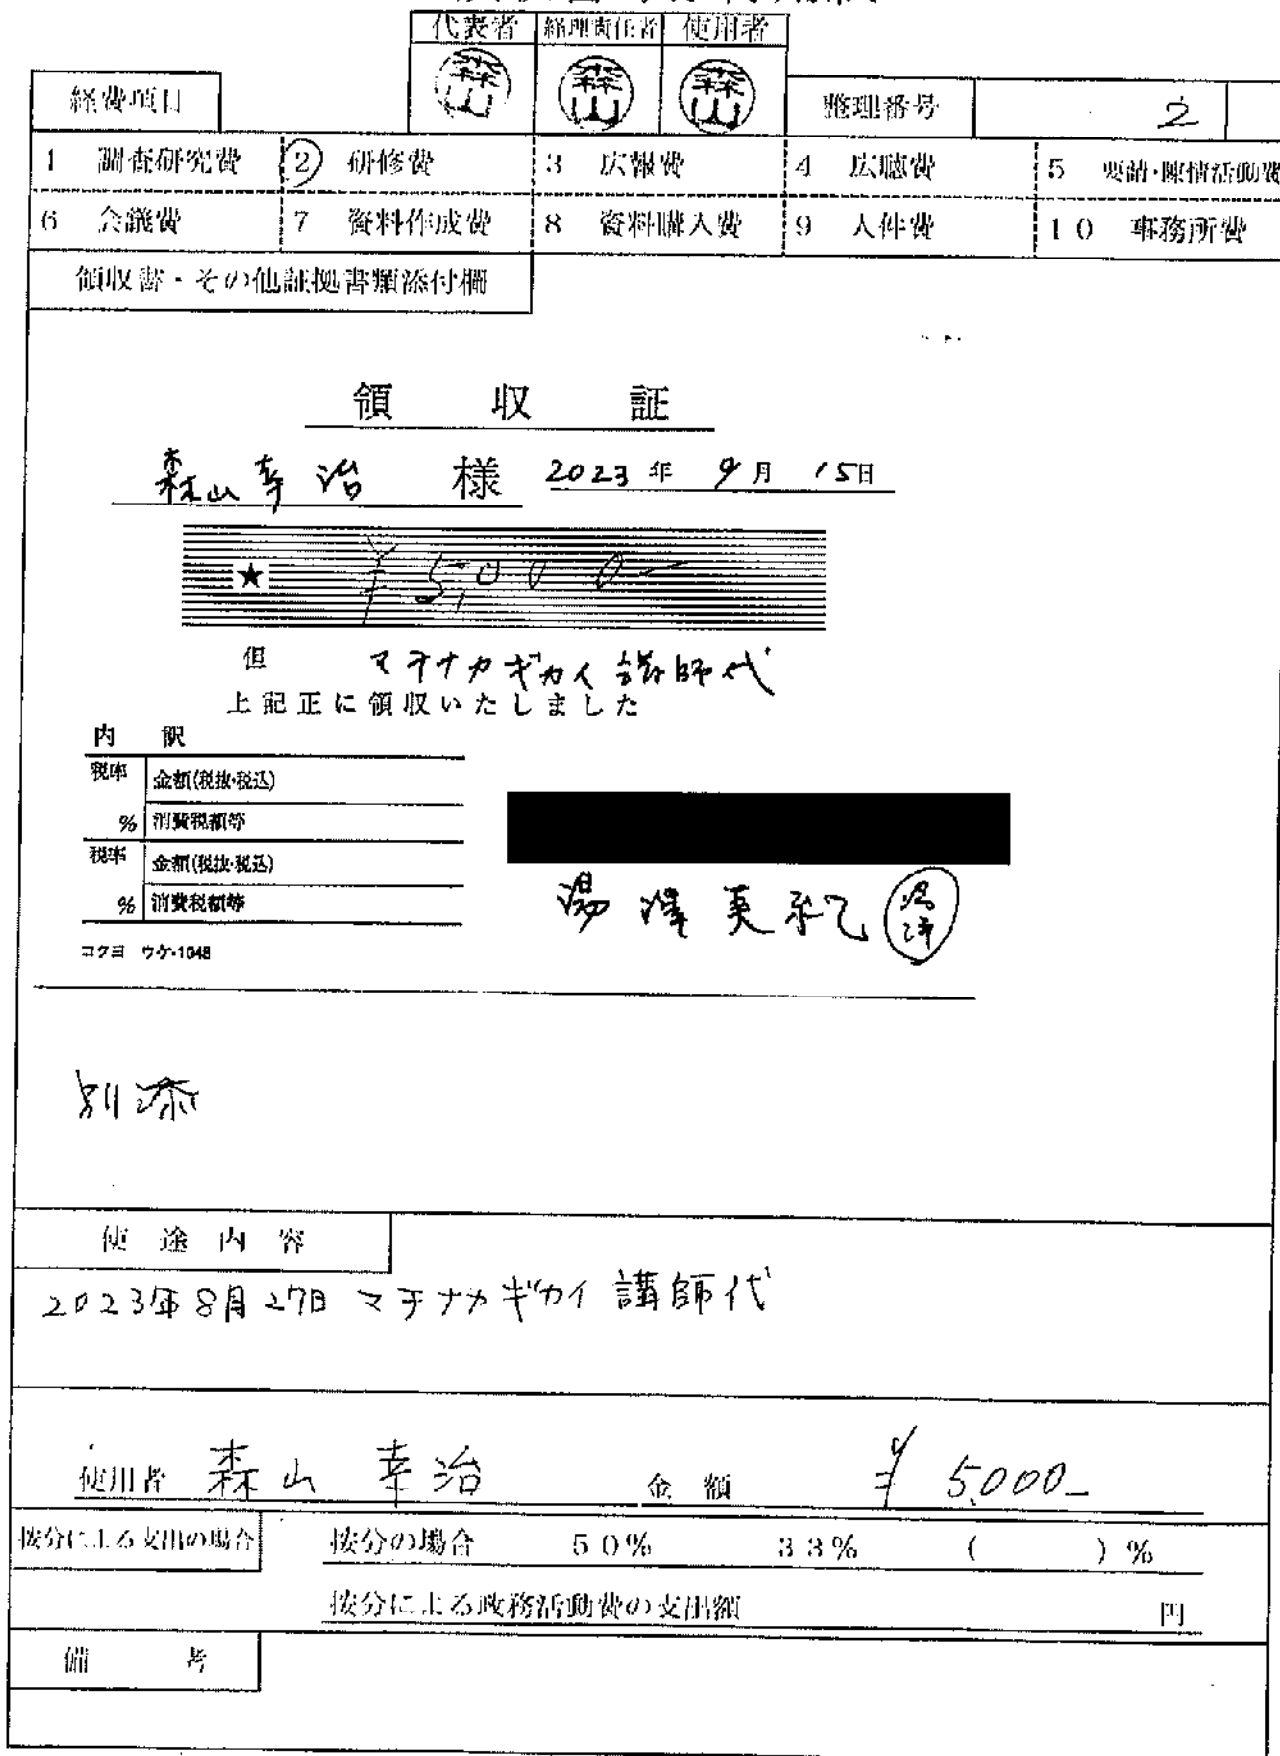 代表者 経理責任者 使用者
森山 森山 森山
経費項目 整理番号 2
1 調査研究費 2 研修費 3 広報費 4 広聴費 5 要請・陳情活動費
6 会議費 7 資料作成費 8 資料購入費 9 人件費 10 事務所費
領収書・その他証拠書類添付欄
領収証
森山幸治 様 2023年 9月 15日
★ ¥5,000-
但 マチナカギカイ講師代
上記正に領収いたしました
内訳
税率 金額(税抜・税込)
% 消費税額等
税率 金額(税抜・税込)
% 消費税額等
湯澤美紀 湯澤
コクヨ ウケ-1048
別添
使途内容
2023年8月27日 マチナカギカイ 講師代
使用者 森山 幸治 金額 ¥5,000-
按分による支出の場合 按分の場合 50% 33% ( )%
按分による政務活動費の支出額 円
備考